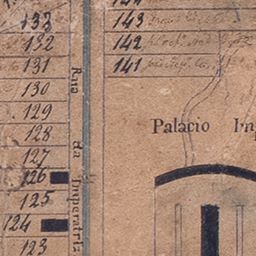 133
132
131
130
129
128
127
126
125
124
123
Rua da Imperatriz
143
142
141
Palacio Imp